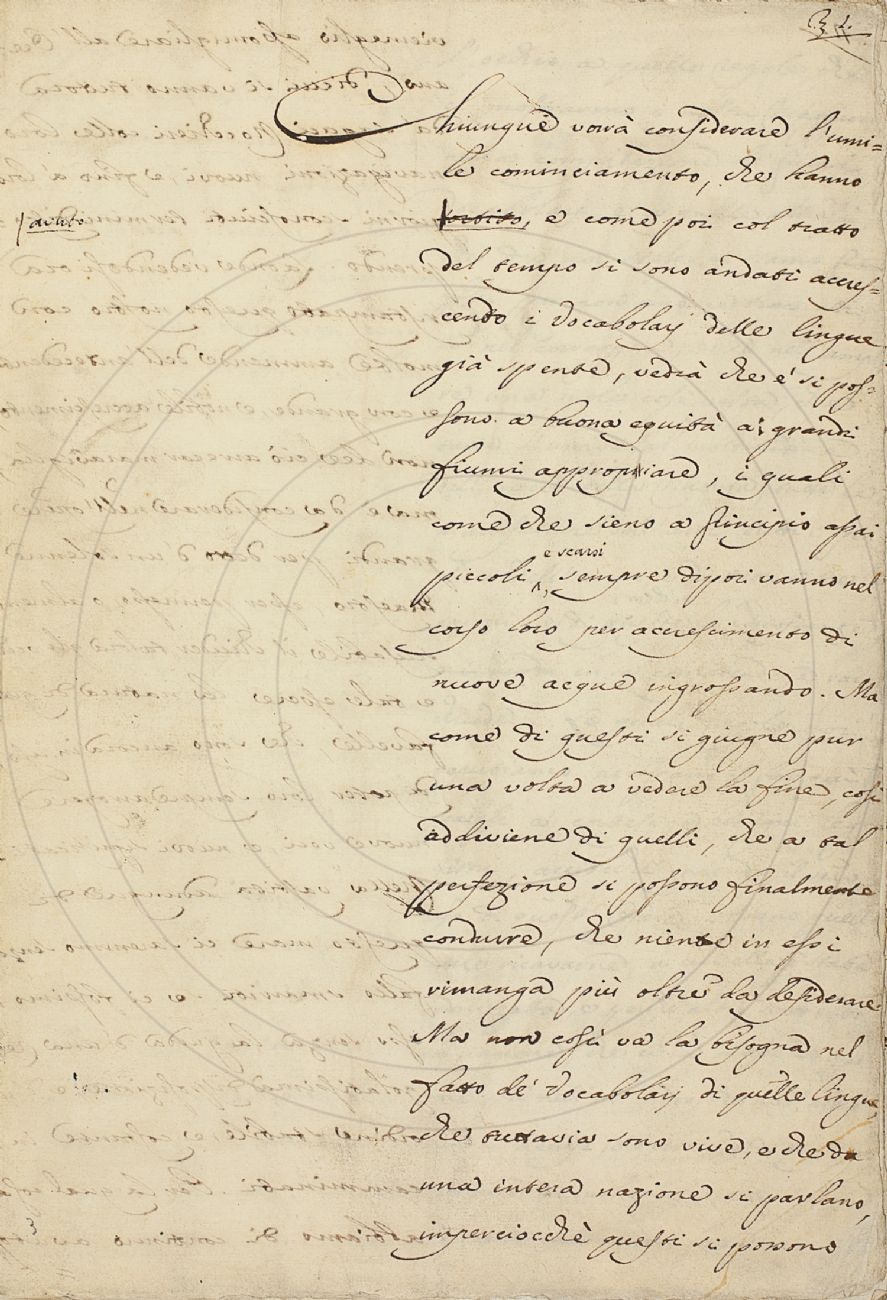 Chiunque vorrà considerare l'umi=
le cominciamento, che hanno
avuto
sortito, e come poi col tratto
del tempo si sono andati accres=
cendo i Vocabolarj delle lingue
già spente, vedrà che e' si pos=
sono a buona equità a' grandi
fiumi appropriare, i quali
come che sieno a principio assai
e scarsi
piccoli, sempre dipoi vanno nel
corso loro per accrescimento di
nuove acque ingrossando. Ma
come di questi si giugne pur
una volta a vedere la fine, così
addiviene di quelli, che a tal
perfezione si possono finalmente
condurre, che niente in essi
rimanga più oltre da desiderare.
Ma non così va la bisogna nel
fatto de' Vocabolarj di quelle lingue,
che tuttavia sono vive, e che da
una intera nazione si parlano,
imperciocchè questi si possono
3